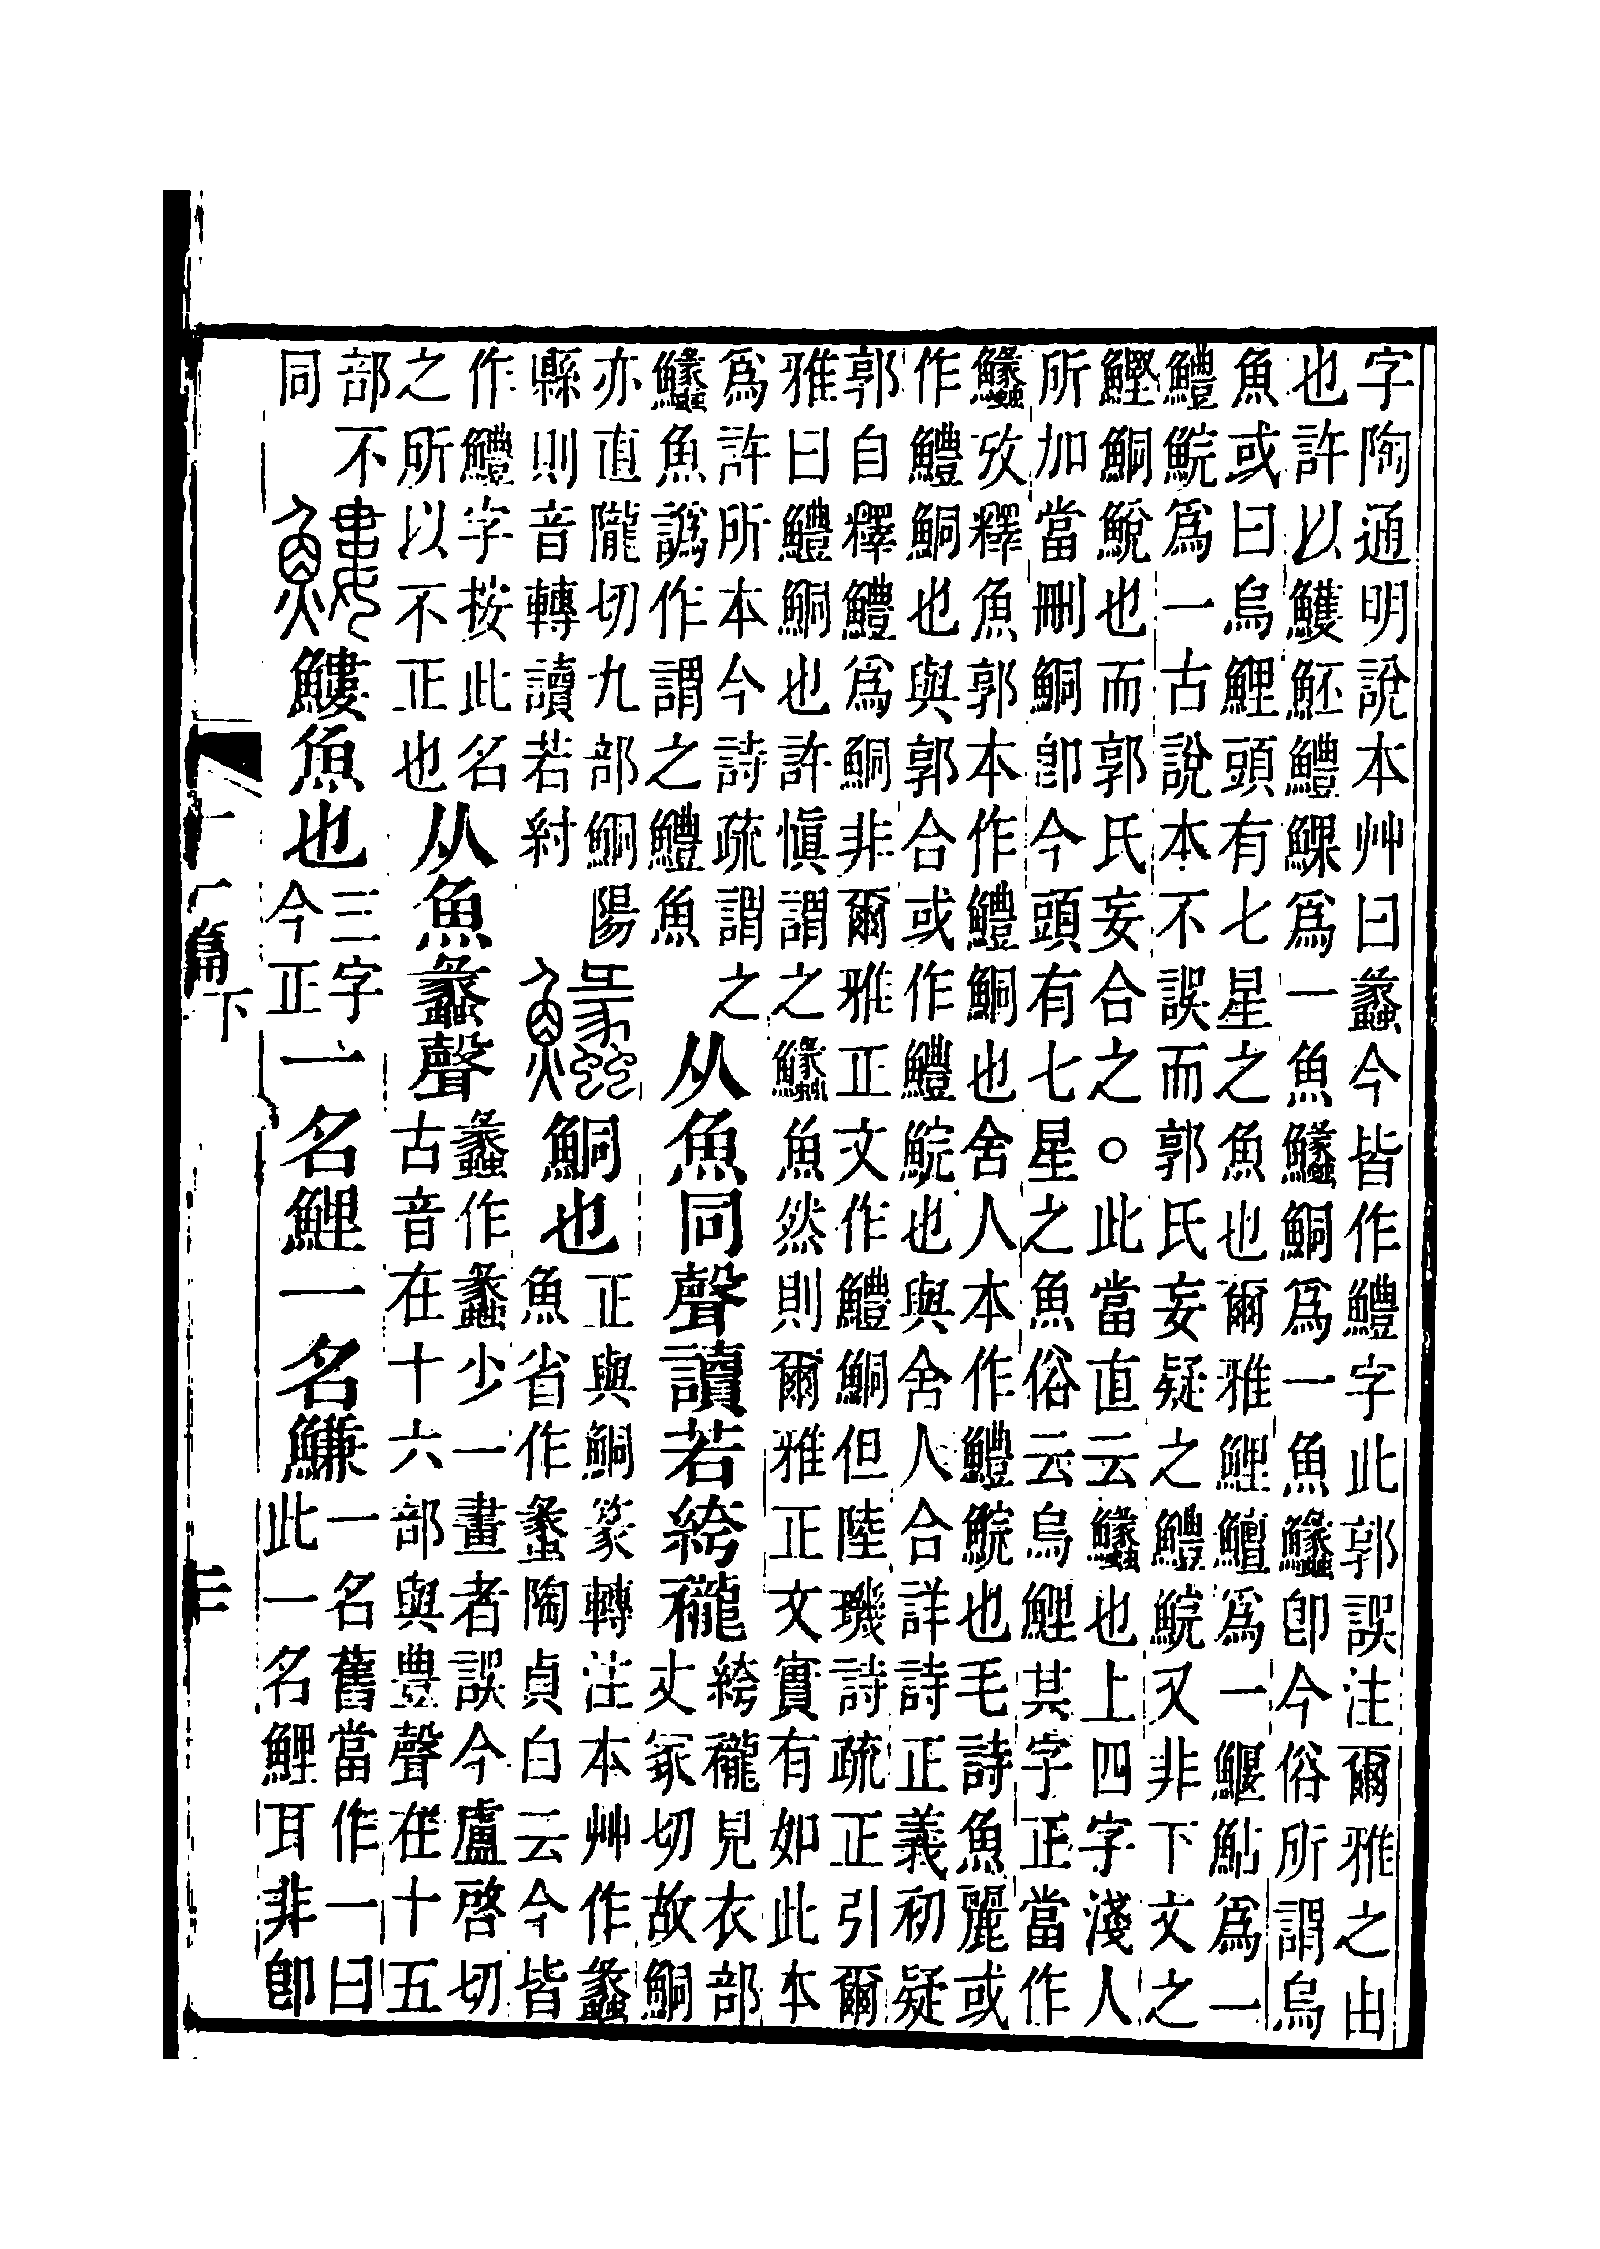 字陶通明說本艸曰蠡今皆作鱧字此郭誤注爾雅之由
也許以鱯魾鱧䱹爲一魚𩽵鮦爲一魚𩽵卽今俗所謂烏
魚或曰烏鯉頭有七星之魚也爾雅鯉鱣爲一鰋鮎爲一
鱧鯇爲一古說本不誤而郭氏妄疑之鱧鯇又非下文之
鰹鮦鮵也而郭氏妄合之○此當直云𩽵也上四字淺人
所加當刪鮦卽今頭有七星之魚俗云烏鯉其字正當作
𩽵攷釋魚郭本作鱧鮦也舍人本作鱧鯇也毛詩魚麗或
作鱧鮦也與郭合或作鱧鯇也與舍人合詳詩正義初疑
郭自釋鱧爲鮦非爾雅正文作鱧鮦但陸璣詩疏正引爾
雅曰鱧鮦也許愼謂之𩽵魚然則爾雅正文實有如此本
爲許所本今詩疏謂之
𩽵魚譌作謂之鱧魚
从魚同聲讀若絝襱
絝襱見衣部
丈冢切故鮦
亦直隴切九部鮦陽
縣則音轉讀若紂
𩽵鮦也
正與鮦篆轉注本艸作蠡
魚省作蠡陶貞白云今皆
作鱧字按此名
之所以不正也
从魚蠡聲
蠡作蠡少一畫者誤今盧啓切
古音在十六部與豊聲在十五
部不
同
䱾䱾魚也
三字
今正
一名鯉一名鰜
一名舊當作一曰
此一名鯉耳非卽
十一篇下